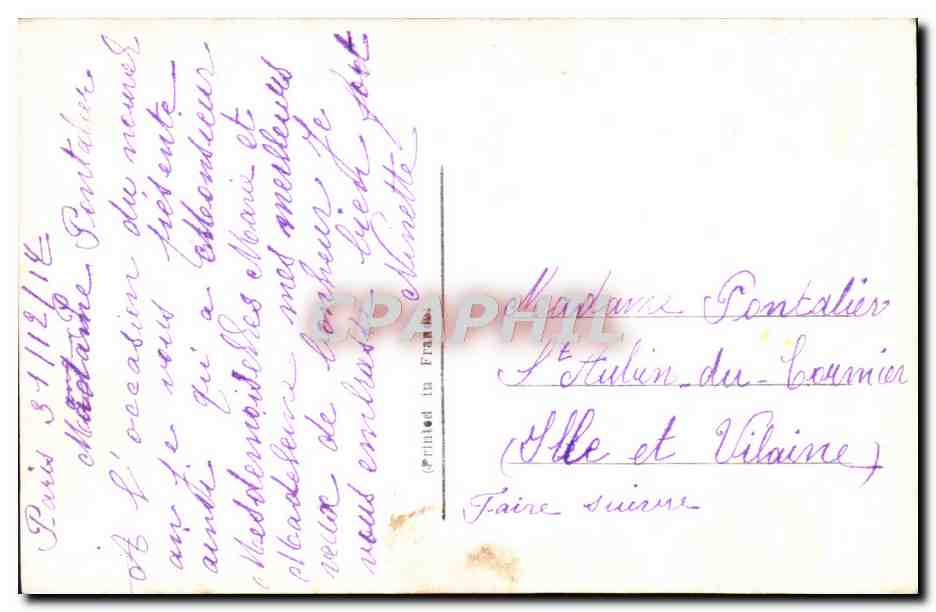 Paris 31/12/14
Madame Pontalier
A l'occasion du nouvel
an je vous présente
ainsi qu'a Monsieur
Mesdemoiselles Marie et
Madeleine mes meilleurs
veux de bonheur Je
vous embrasse bien fort
Ninette
(Printed in France)
CPAPHIL
Madame Pontalier
St Aubin-du-Cormier
(Ille et Vilaine)
Faire suivre